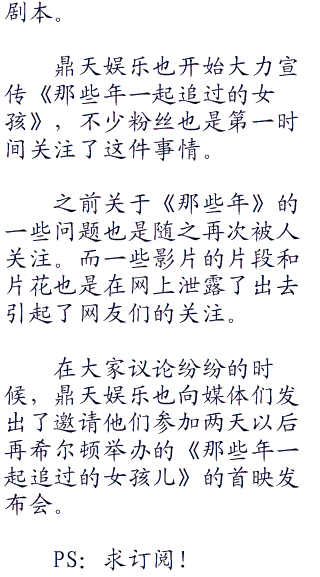 剧本。
鼎天娱乐也开始大力宣
传《那些年一起追过的女
孩》，不少粉丝也是第一时
间关注了这件事情。
之前关于《那些年》的
一些问题也是随之再次被人
关注。而一些影片的片段和
片花也是在网上泄露了出去
引起了网友们的关注。
在大家议论纷纷的时
候，鼎天娱乐也向媒体们发
出了邀请他们参加两天以后
再希尔顿举办的《那些年一
起追过的女孩儿》的首映发
布会。
PS：求订阅！